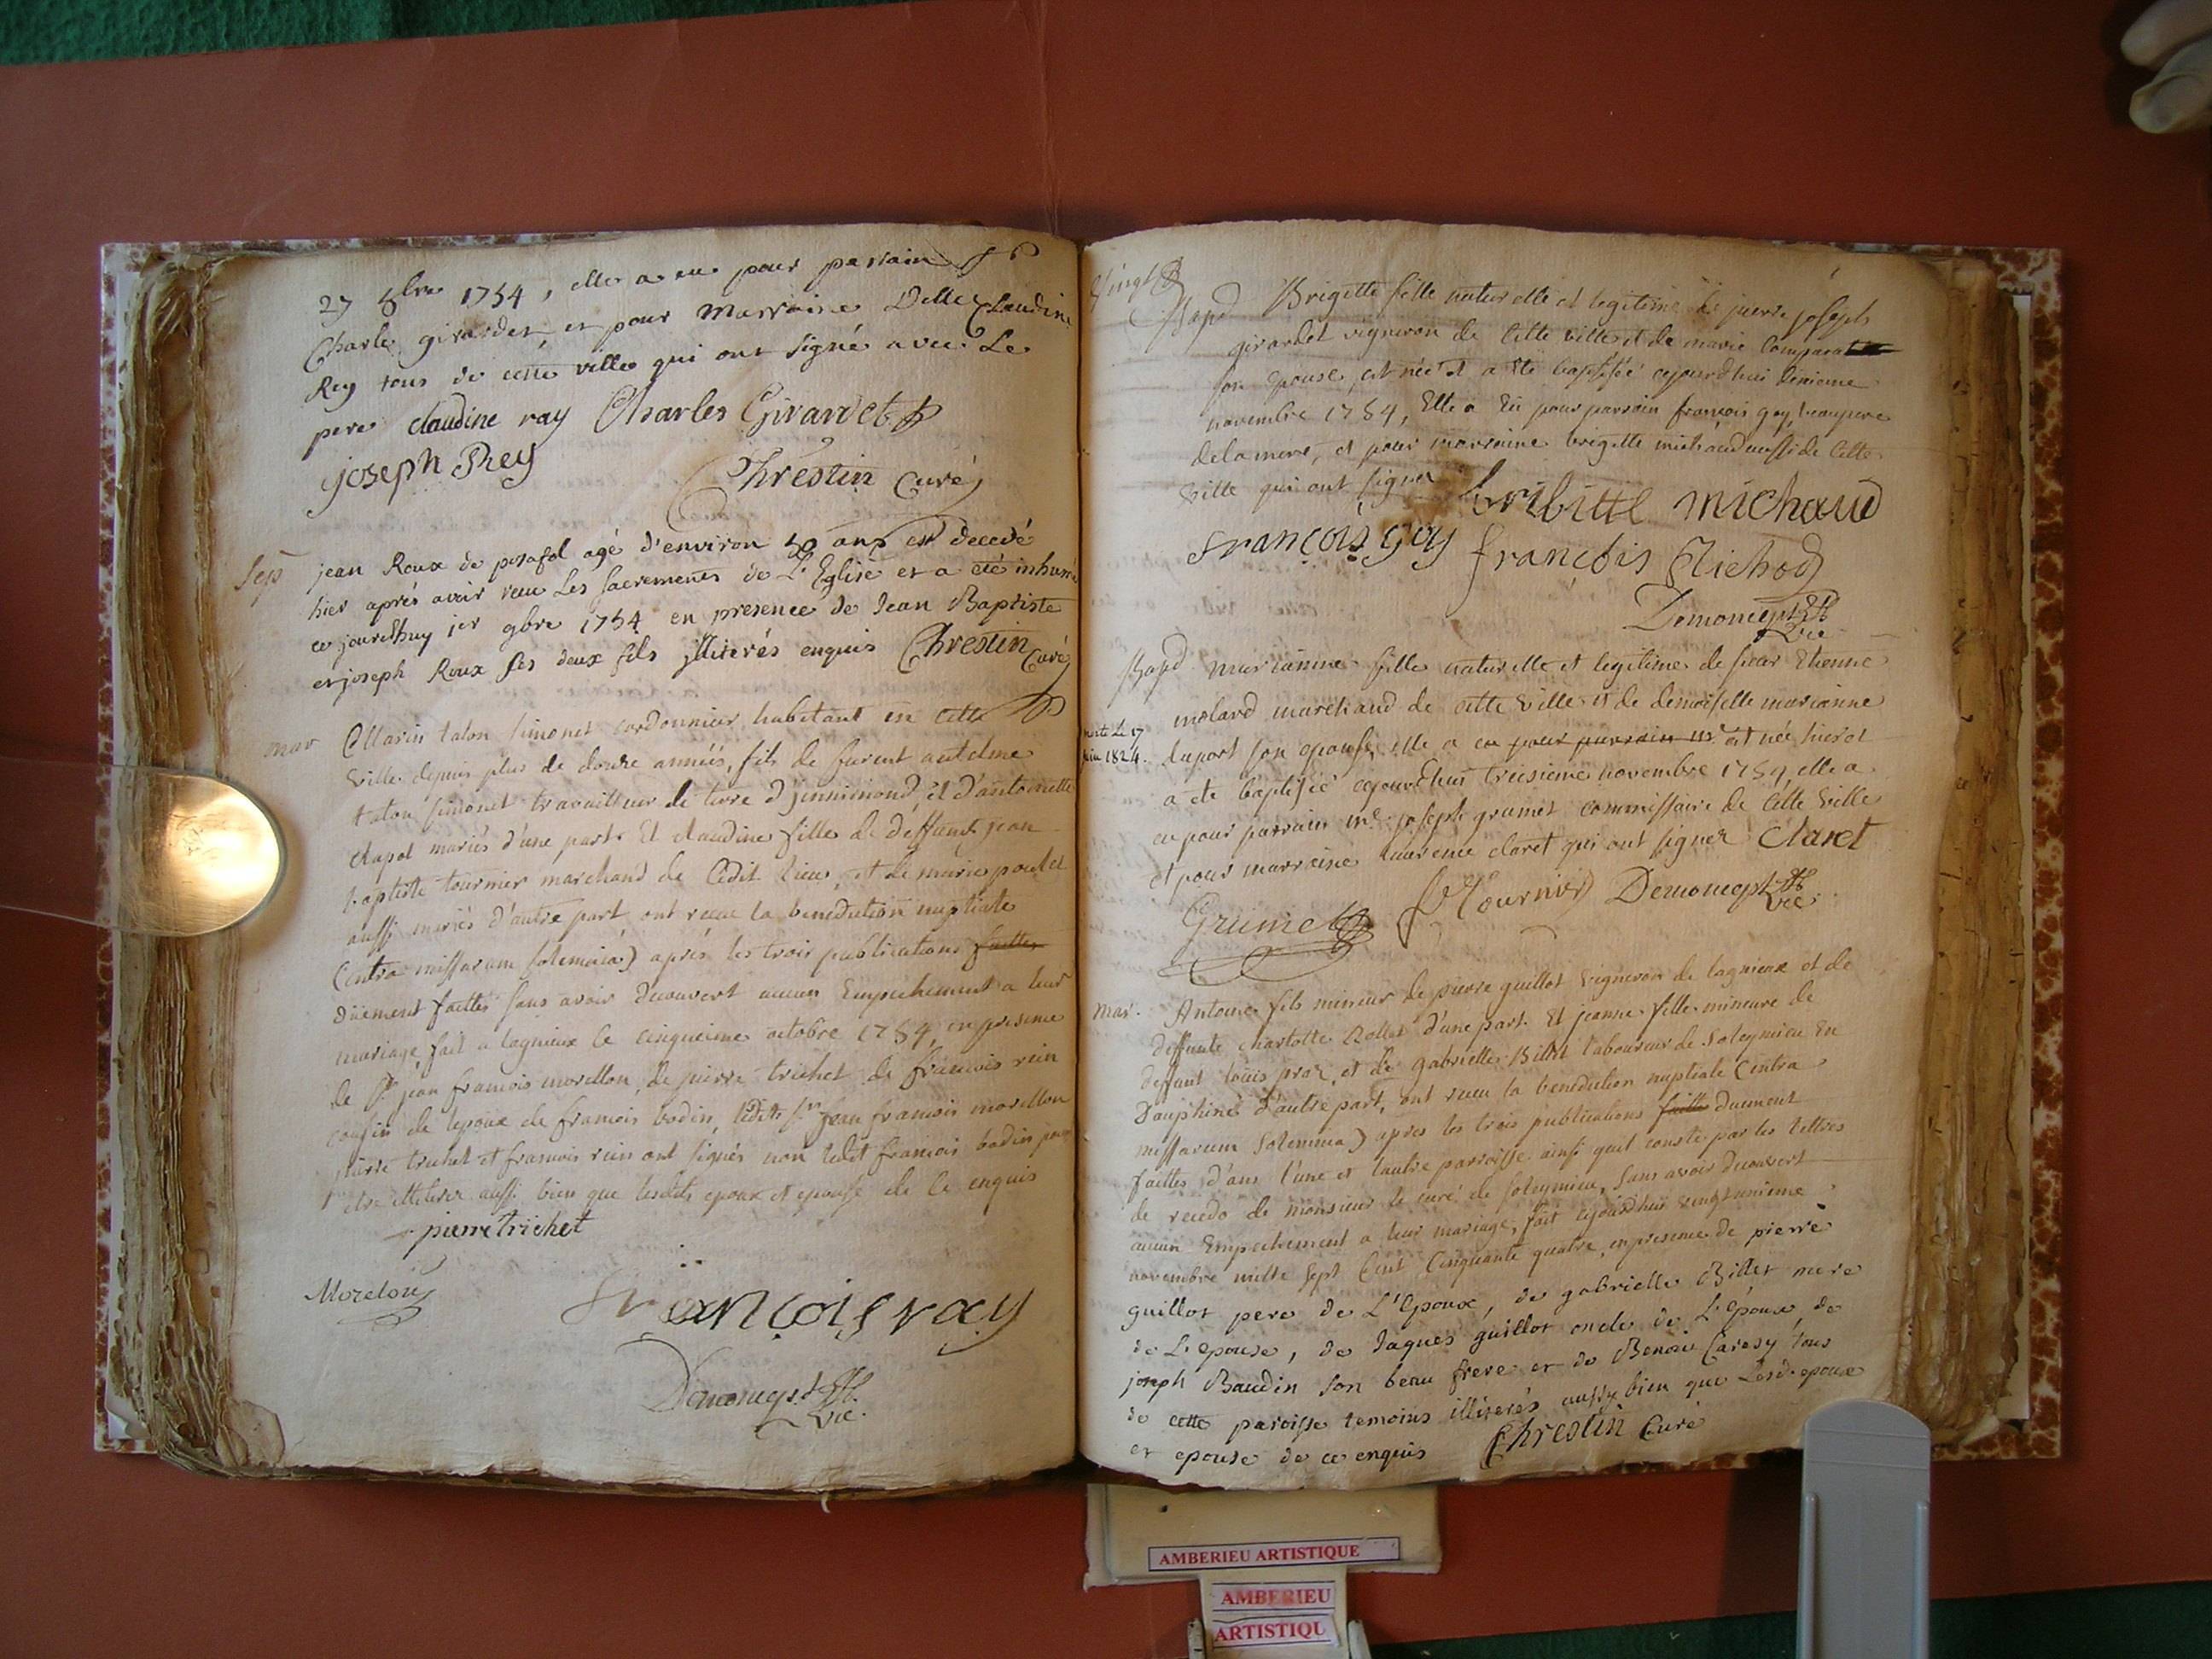 27 8bre 1754, elle a eu pour parrain Sr
Charle girardet, et pour Marraine Delle Claudine
Rey tous de cette ville qui ont signé avec Le
pere claudine ray Charles Girardet
joseph Rey
Chrestin Curé
Sep jean Roux de posafol agé d'environ 50 ans est decedé
hier aprés avoir reçu Les sacrements de L'Eglise et a eté inhumé
ce jourdhuy 1er 9bre 1754 en presence de Jean Baptiste
et joseph Roux ses deux fils illiterés enquis Chrestin Curé
mar Marin talon simonet cordonnier habitant en cette
ville depuis plus de douze années, fils de furent antelme
talon simonet travailleur de terre d'jnnimond, et d'antoinette
chapot mariés d'une part. Et claudine fille de deffunt jean
baptiste tournier marchand de Cedit lieu, et de marie poulet
aussi mariés d'autre part, ont recue la benediction nuptiale
(intra missarum solemnia) aprés les trois publications faittes
düement faittes sans avoir decouvert aucun Empechement a leur
mariage, fait a lagnieux le cinquieme octobre 1754, en presence
de Sr jean francois morellon, de pierre trichet de francois rein
cousin de lepoux de francois bodin, ledit Sr jean francois morellon
pierre trichet et francois rein ont signés non ledit francois bodin pour
etre illiterez aussi bien que lesdits epoux et epouse de ce enquis
pierre trichet
Morelon
françois ray
Demoncept
Vic.
Vingt
Bapt Brigitte fille naturelle et legitime de pierre joseph
girardet vigneron de Cette ville et de marie Comparat
son Epouse, est née et a été baptisée cejourdhui
novembre 1754, Elle a Eü pour parrain françois goy, beaupere
de la mere, et pour marraine brigitte michaud aussi de Cette
ville qui ont signer bribitte michaud
françois goy françois Richod
Demoncept
Vic
Bapt marianne fille naturelle et legitime de sieur Etienne
molard marchand de cette ville et de demoiselle marianne
morte Le 17
juin 1824. duport son epouse, elle a eu pour parrain mr est née hier et
a eté baptisée cejourdhui treisieme novembre 1754, elle a
eu pour parrain me joseph grumet commissaire de Cette ville
et pour marraine laurence claret qui ont signer Claret
Grumet Tournier Demoncept
Vic.
mar. Antoine fils mineur de pierre guillot vigneron de lagnieux et de
deffunte charlotte Rollet d'une part. Et jeanne fille mineure de
deffunt louis praz, et de gabrielle Billet laboureur de Soleymieu En
Dauphiné d'autre part, ont recu la benediction nuptiale (intra
missarum Solemnia) apres les trois publications faittes duement
faittes d'ans l'une et l'autre parroisse ainsi quil conste par les lettres
de recedo de monsieur le curé de soleymieu, sans avoir decouvert
aucun Empechement a leur mariage, fait cejourdhui vingtunieme
novembre mille sept Cent Cinquante quatre, en presence de pierre
guillot pere de L'Epoux, de gabrielle Billet mere
de L'epouse, de Jaques guillot oncle de L'Epoux, de
joseph Baudin son beau frere et de Benoit Carosy, tous
de cette paroisse temoins illiterés aussy bien que Lesd. epoux
et epouse de ce enquis Chrestin Curé
AMBERIEU ARTISTIQUE
AMBERIEU
ARTISTIQU